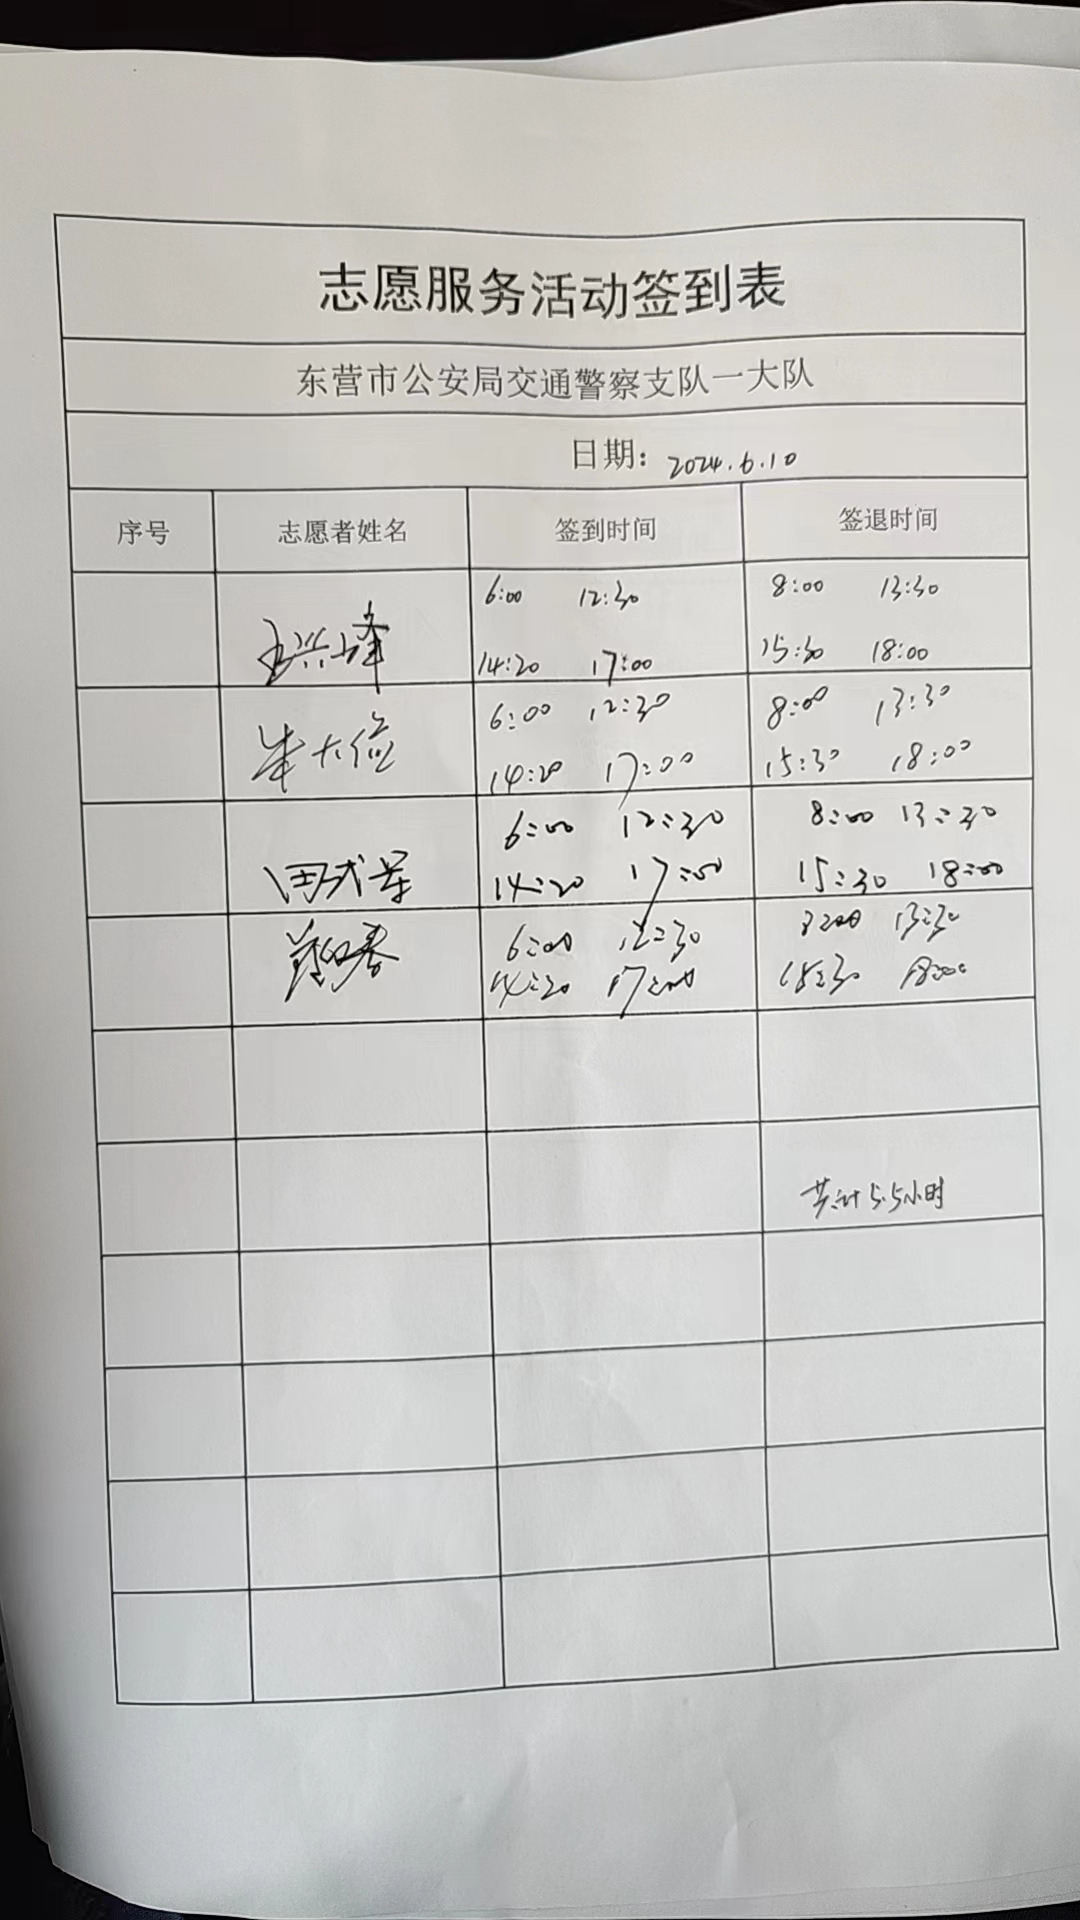 志愿服务活动签到表
东营市公安局交通警察支队一大队
日期：2024.6.10
序号 志愿者姓名 签到时间 签退时间
6:00 12:30 8:00 13:30
14:20 17:00 15:30 18:00
6:00 12:30 8:00 13:30
14:20 17:00 15:30 18:00
6:00 12:30 8:00 13:30
14:20 17:00 15:30 18:00
6:00 12:30 8:00 13:30
14:20 17:00 15:30 18:00
共计5.5小时